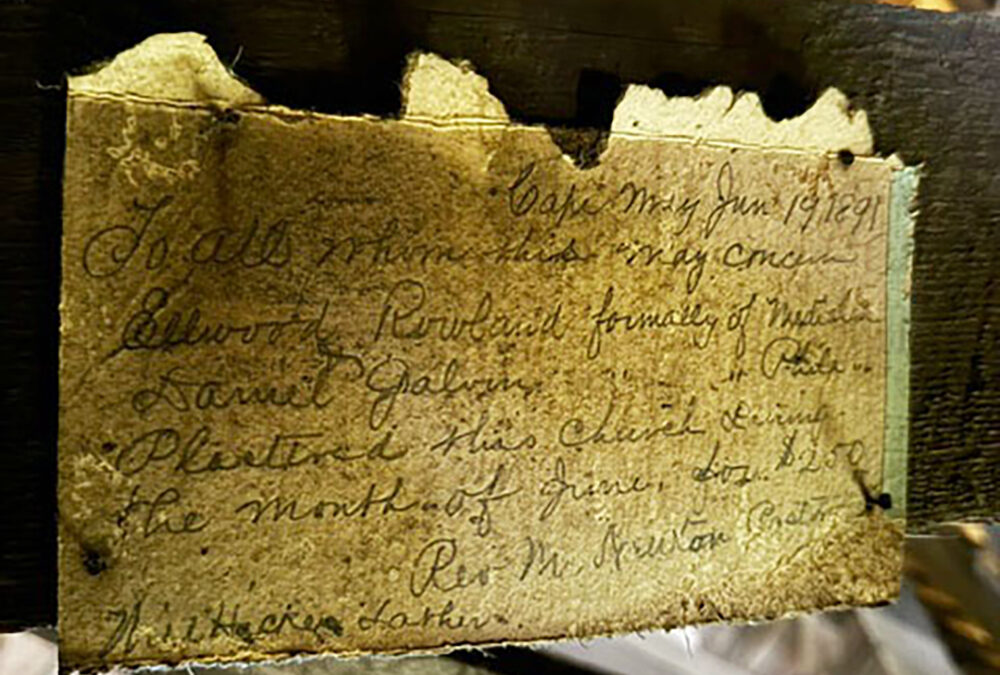 Cape May Jun 19 1891
To all whom this may concern
Ellwood Rowland formally of
Daniel Galvin " Phila "
Plastered this Church During
the month of June. for $250
Rev M. Newton Pastor
Will Hacker Lather.